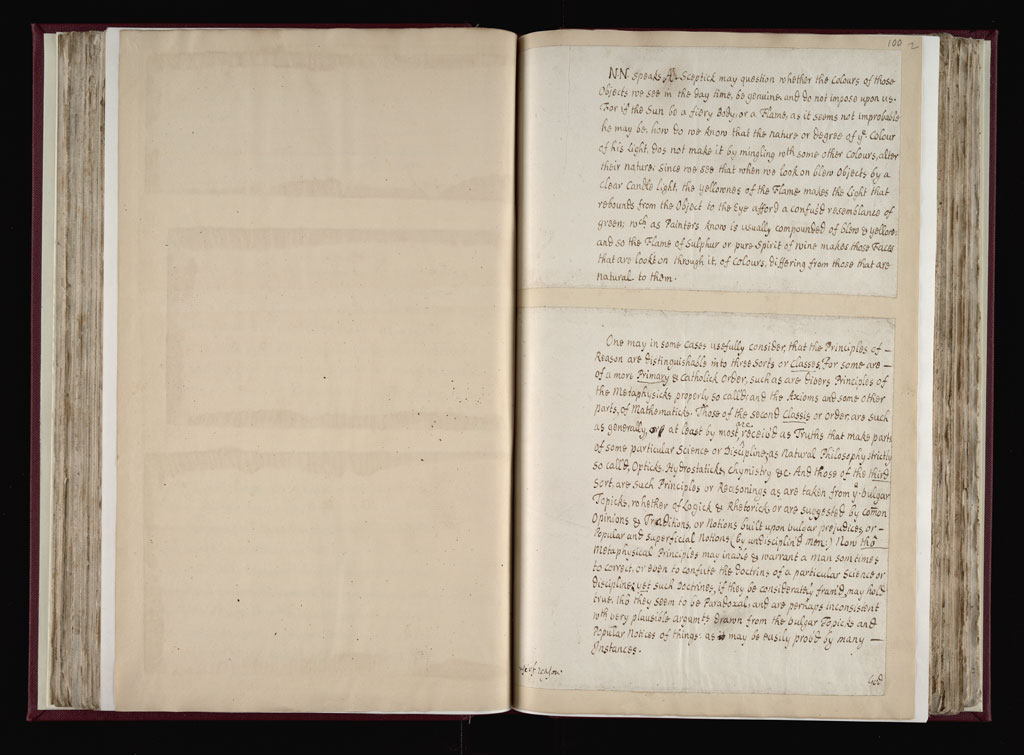 100 2
NN speaks A Sceptick may question whether the Colours of those
Objects we see in the day time, be genuine, and do not impose upon us.
For if the Sun be a fiery Body, or a Flame, as it seems not improbable
he may be, how do we know that the nature or degree of yᵉ Colour
of his Light, dos not make it by mingling wᵗʰ some other Colours, alter
their nature; since we see that when we look on blew Objects by a
clear Candle light, the yellownes of the Flame makes the Light that
rebounds from the Object to the Eye afford a confus'd resemblance of
green; wᶜʰ as Painters know is usually compounded of blew & yellow:
and so the Flame of Sulphur or pure Spirit of wine makes those Faces
that are lookt on through it, of Colours, differing from those that are
natural to them.
One may in some Cases usefully consider, that the Principles of —
Reason are distinguishable into three Sorts or Classes. For some are —
of a more Primary & Catholick Order, such as are divers Principles of
the Metaphysicks properly so call'd; and the Axioms and some other
parts, of Mathematicks. Those of the second Classis or Order, are such
as generally, or at least by most, are receiv'd as Truths that make part
of some particular Science or Discipline, as Natural Philosophy strictly
so call'd, Opticks, Hydrostaticks, Chymistry &c. And those of the third
Sort, are such Principles or Reasonings as are taken from yᵉ vulgar
Topicks, whether of Logick & Rhetorick, or are suggested by com̄on
Opinions & Traditions, or Notions built upon vulgar prejudices, or —
Popular and superficial Notions (by undisciplin'd Men:) Now tho'
Metaphysical Principles may inable & warrant a man somtimes
to correct, or even to confute the doctrins of a particular Science or
discipline; yet such Doctrines, if they be considerately fram'd, may hold
true, tho they seem to be Paradoxal; and are perhaps inconsistent
wᵗʰ very plausible argumᵗˢ drawn from the vulgar Topicks and
Popular Notices of things: as may be easily prov'd by many —
Instances.
of reason